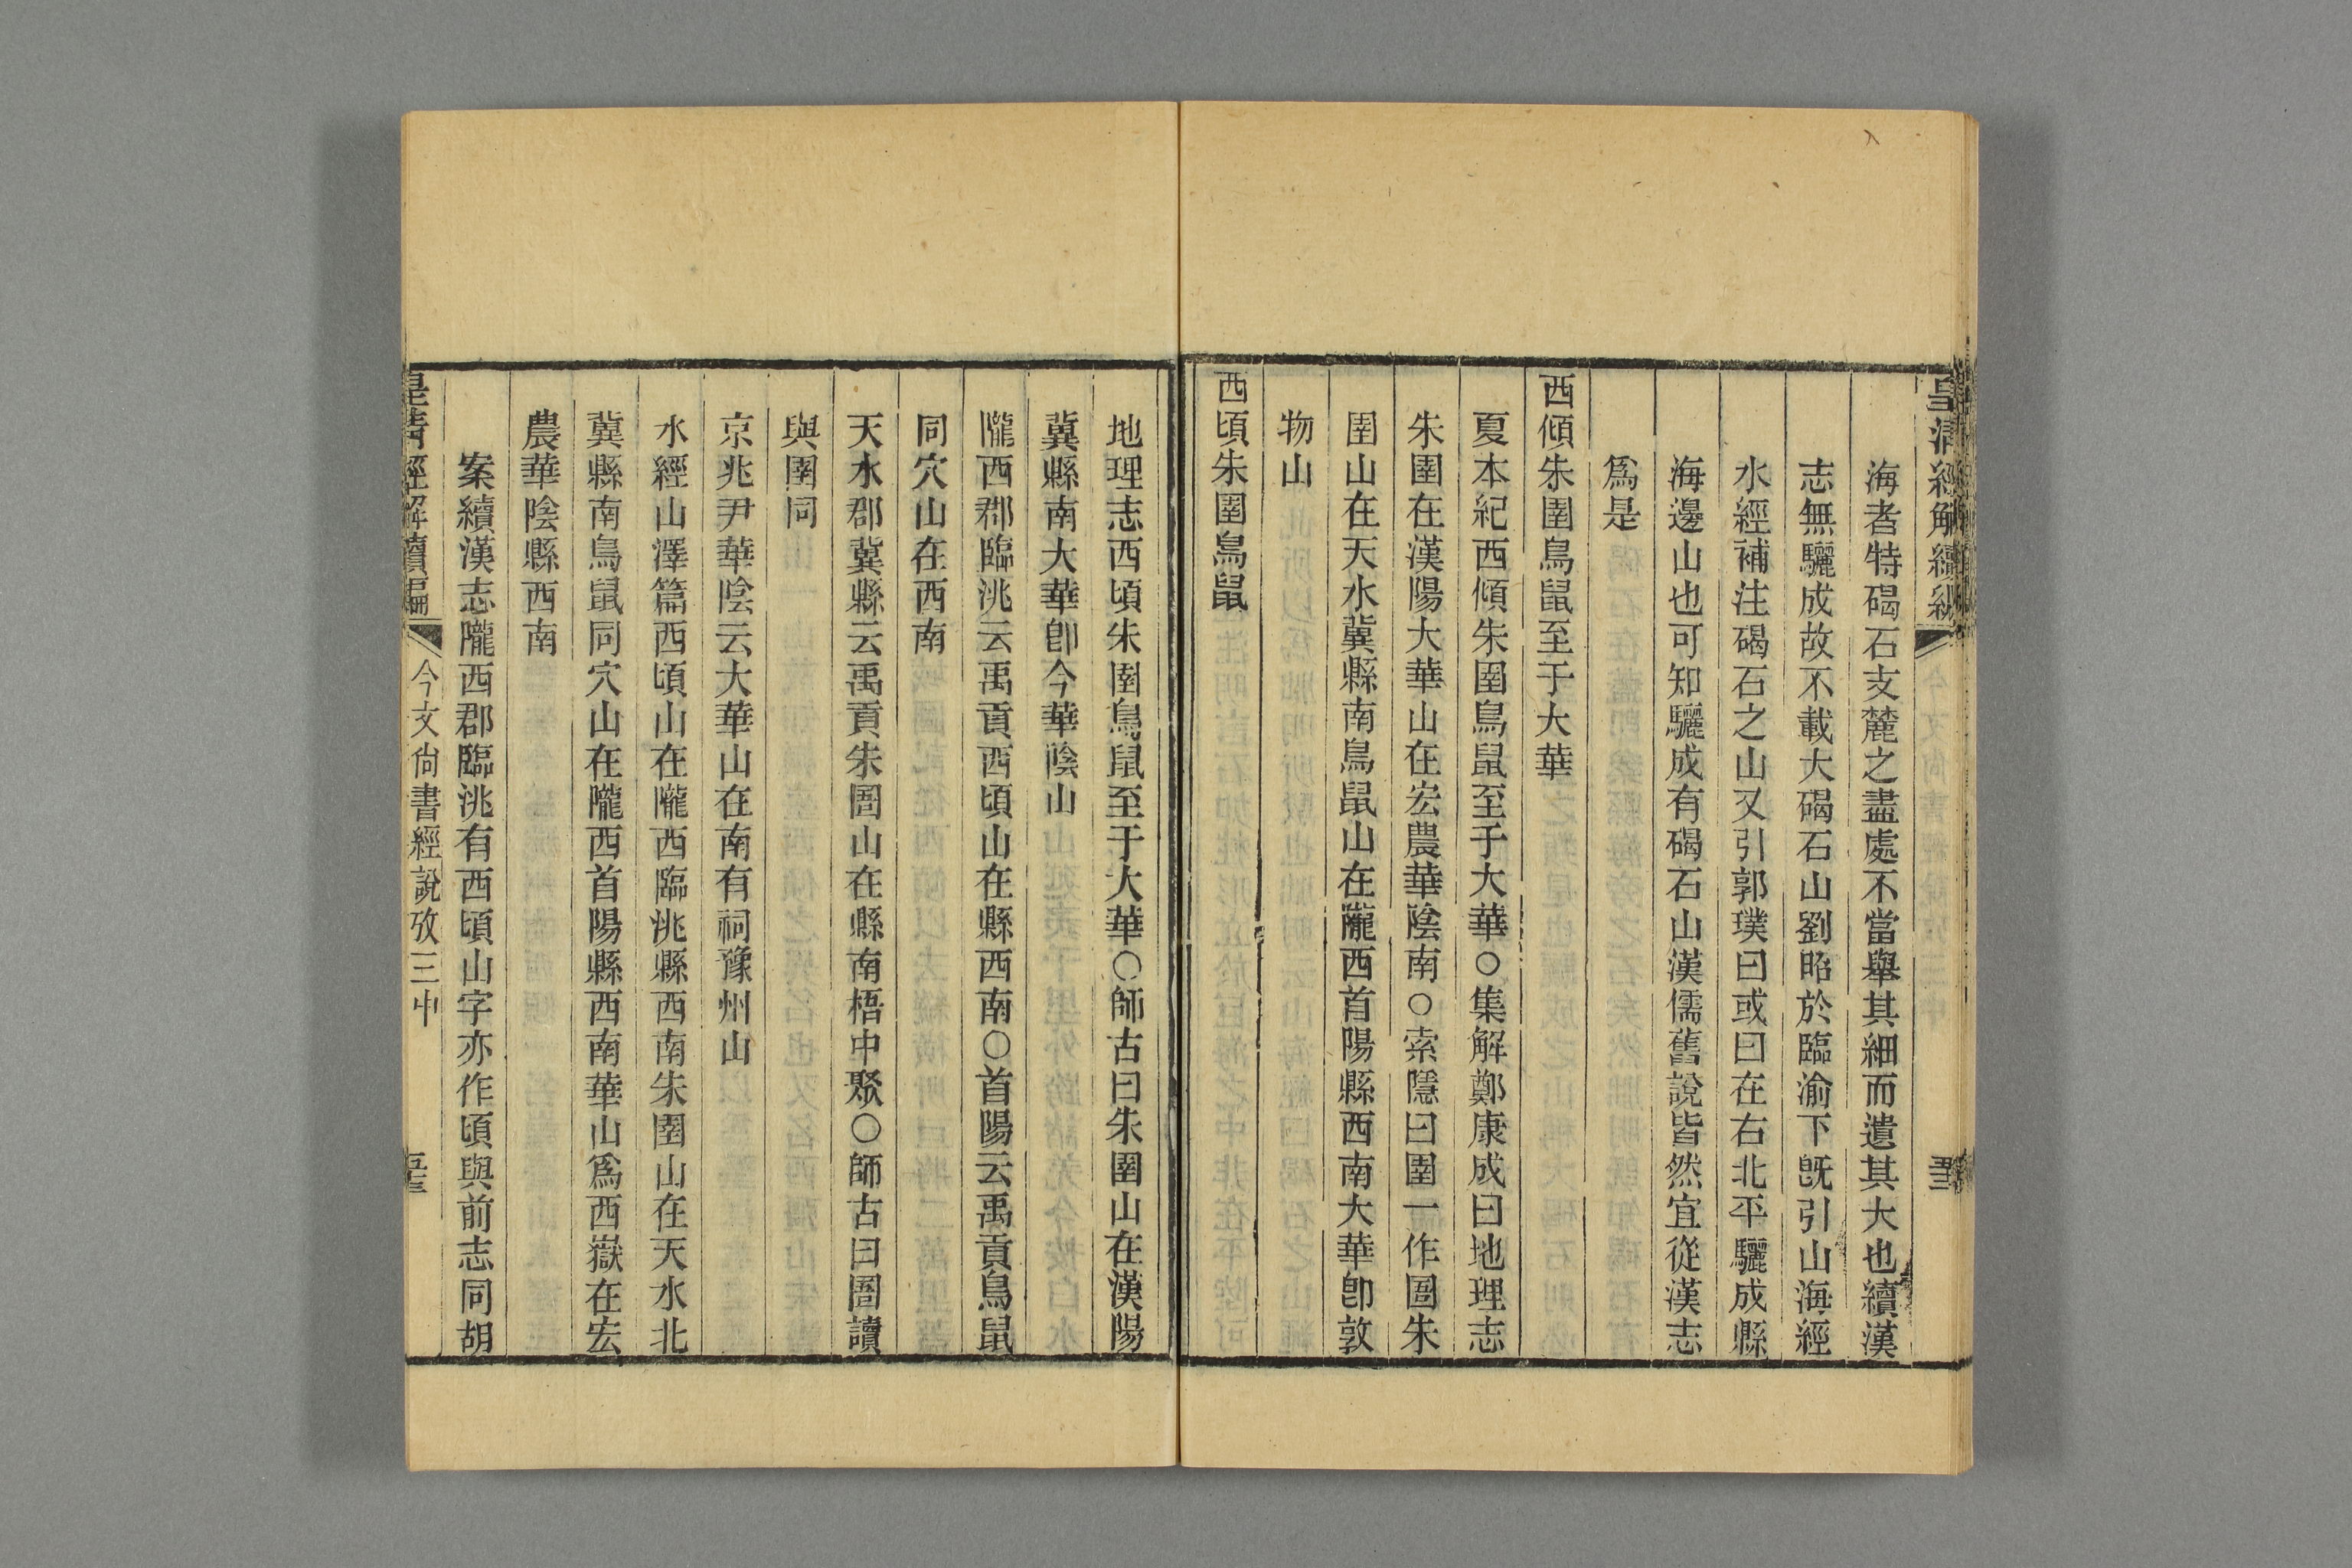 皇清經解續編
海者特碣石支麓之盡處不當舉其細而遺其大也續漢
志無驪成故不載大碣石山劉昭於臨渝下旣引山海經
水經補注碣石之山又引郭璞曰或曰在右北平驪成縣
海邊山也可知驪成有碣石山漢儒舊說皆然宜從漢志
爲是
西傾朱圉鳥鼠至于大華
夏本紀西傾朱圉鳥鼠至于大華○集解鄭康成曰地理志
朱圉在漢陽大華山在宏農華陰南○索隱曰圉一作圄朱
圉山在天水冀縣南鳥鼠山在隴西首陽縣西南大華卽敦
物山
西頃朱圉鳥鼠
地理志西頃朱圉鳥鼠至于大華○師古曰朱圉山在漢陽
冀縣南大華卽今華陰山
隴西郡臨洮云禹貢西頃山在縣西南○首陽云禹貢鳥鼠
同穴山在西南
天水郡冀縣云禹貢朱圄山在縣南梧中聚○師古曰圄讀
與圉同
京兆尹華陰云大華山在南有祠豫州山
水經山澤篇西頃山在隴西臨洮縣西南朱圉山在天水北
冀縣南鳥鼠同穴山在隴西首陽縣西南華山爲西嶽在宏
農華陰縣西南
案續漢志隴西郡臨洮有西頃山字亦作頃與前志同胡
皇清經解續編
今文尙書經說攷三中